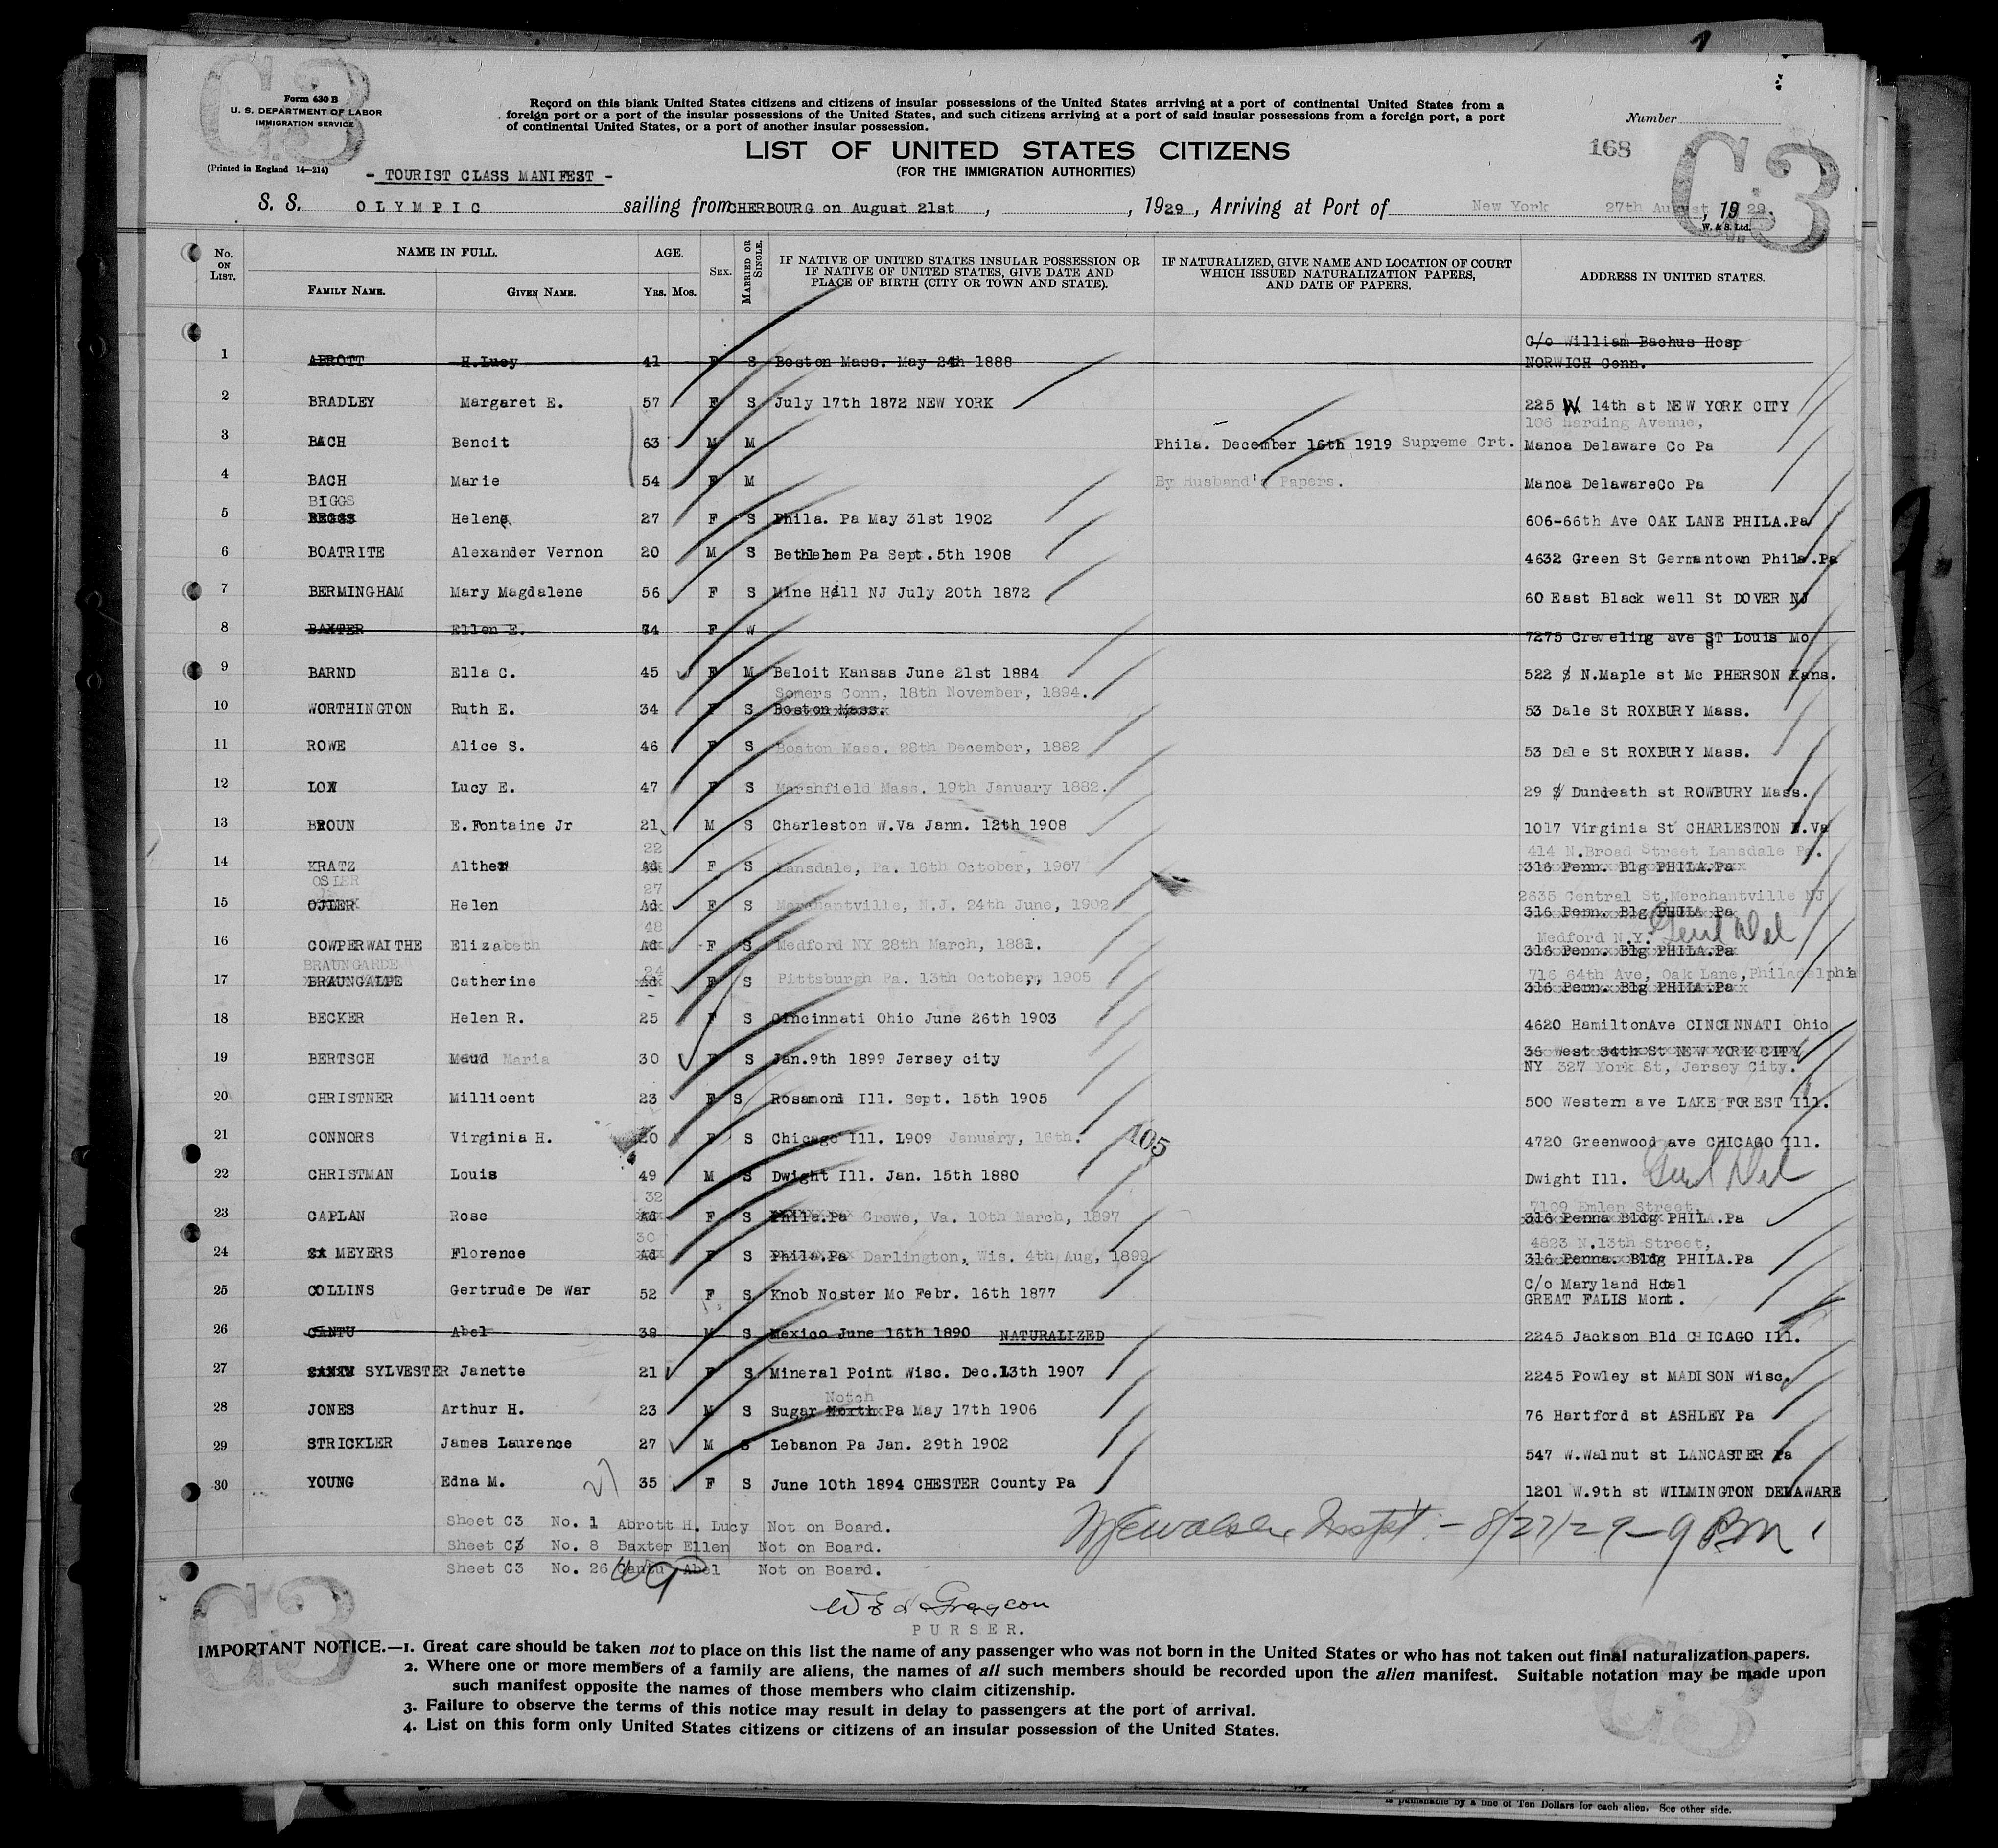 C3
Form 630 B
U. S. DEPARTMENT OF LABOR
IMMIGRATION SERVICE
(Printed in England 14—214)
- TOURIST CLASS MANIFEST -
Record on this blank United States citizens and citizens of insular possessions of the United States arriving at a port of continental United States from a
foreign port or a port of the insular possessions of the United States, and such citizens arriving at a port of said insular possessions from a foreign port, a port
of continental United States, or a port of another insular possession.
LIST OF UNITED STATES CITIZENS
(FOR THE IMMIGRATION AUTHORITIES)
Number
168
C3
S. S. OLYMPIC sailing from CHERBOURG on August 21st , , 1929 , Arriving at Port of New York 27th August , 19 29.
W. & S. Ltd.
No. ON LIST. NAME IN FULL. FAMILY NAME. GIVEN NAME. AGE. YRS. MOS. SEX. MARRIED OR SINGLE. IF NATIVE OF UNITED STATES INSULAR POSSESSION OR IF NATIVE OF UNITED STATES, GIVE DATE AND PLACE OF BIRTH (CITY OR TOWN AND STATE). IF NATURALIZED, GIVE NAME AND LOCATION OF COURT WHICH ISSUED NATURALIZATION PAPERS, AND DATE OF PAPERS. ADDRESS IN UNITED STATES.
C/o William Bachus Hosp
1 ABROTT H.Lucy 41 F S Boston Mass. May 24th 1888 NORWICH Conn.
2 BRADLEY Margaret E. 57 F S July 17th 1872 NEW YORK 225 W. 14th st NEW YORK CITY
106 Harding Avenue,
3 BACH Benoit 63 M M Phila. December 16th 1919 Supreme Crt. Manoa Delaware Co Pa
4 BACH Marie 54 F M By Husband's Papers. Manoa DelawareCo Pa
BIGGS
5 BEGGS Helen 27 F S Phila. Pa May 31st 1902 606-66th Ave OAK LANE PHILA.Pa
6 BOATRITE Alexander Vernon 20 M S Bethlehem Pa Sept.5th 1908 4632 Green St Germantown Phila.Pa
7 BERMINGHAM Mary Magdalene 56 F S Mine Hill NJ July 20th 1872 60 East Black well St DOVER NJ
8 BAXTER Ellen E. 74 F W 7275 Creveling ave ST Louis Mo
9 BARND Ella C. 45 F M Beloit Kansas June 21st 1884 522 N.Maple st Mc PHERSON Kans.
Somers Conn, 18th November, 1894.
10 WORTHINGTON Ruth E. 34 F S Boston Mass. 53 Dale St ROXBURY Mass.
11 ROWE Alice S. 46 F S Boston Mass. 28th December, 1882 53 Dale St ROXBURY Mass.
12 LOW Lucy E. 47 F S Marshfield Mass. 19th January 1882. 29 Dundeath st ROWBURY Mass.
13 BROUN E.Fontaine Jr 21 M S Charleston W.Va Jann. 12th 1908 1017 Virginia St CHARLESTON W.Va
22 414 N.Broad Street Lansdale Pa.
14 KRATZ Alther Ad F S Lansdale, Pa. 16th October, 1907 316 Penn. Blg PHILA.Pa
OSLER 27 2635 Central St,Merchantville NJ
15 OJLER Helen Ad F S Merchantville, N.J. 24th June, 1902 316 Penn. Blg PHILA Pa
48 Medford N.Y. Genl Del
16 COWPERWAITHE Elizabeth Ad F S Medford NY 28th March, 1881. 316 Penn. Blg PHILA.Pa
BRAUNGARDE 24 716 64th Ave, Oak Lane,Philadelphia
17 BRAUNGALPE Catherine Ad F S Pittsburgh Pa. 13th October,, 1905 316 Penn. Blg PHILA.Pa
18 BECKER Helen R. 25 F S Cincinnati Ohio June 26th 1903 4620 HamiltonAve CINCINNATI Ohio
36 West 34th St NEW YORK CITY
19 BERTSCH Maud Maria 30 F S Jan.9th 1899 Jersey city NY 327 York St, Jersey City.
20 CHRISTNER Millicent 23 F S Rosamond Ill. Sept. 15th 1905 500 Western ave LAKE FOREST Ill.
21 CONNORS Virginia H. 20 F S Chicago Ill. 1909 January, 16th. 105 4720 Greenwood ave CHICAGO Ill.
22 CHRISTMAN Louis 49 M S Dwight Ill. Jan. 15th 1880 Dwight Ill. Genl Del
32 7109 Emlen Street,
23 CAPLAN Rose Ad F S Phila.Pa Crewe, Va. 10th March, 1897 316 Penna Bldg PHIL.Pa
30 4823 N.13th Street,
24 MEYERS Florence Ad F S Phila.Pa Darlington, Wis. 4th Aug, 1899 316 Penna. Bldg PHILA.Pa
C/o Maryland Hotel
25 COLLINS Gertrude De War 52 F S Knob Noster Mo Febr. 16th 1877 GREAT FALLS Mont.
26 CANTU Abel 38 M S Mexico June 16th 1890 NATURALIZED 2245 Jackson Bld CHICAGO Ill.
27 SYLVESTER Janette 21 F S Mineral Point Wisc. Dec.13th 1907 2245 Powley st MADISON Wisc.
Notch
28 JONES Arthur H. 23 M S Sugar North Pa May 17th 1906 76 Hartford st ASHLEY Pa
29 STRICKLER James Laurence 27 M S Lebanon Pa Jan. 29th 1902 547 W.Walnut st LANCASTER Pa
30 YOUNG Edna M. 35 F S June 10th 1894 CHESTER County Pa 1201 W.9th st WILMINGTON DELAWARE
Sheet C3 No. 1 Abrott H. Lucy Not on Board.
Sheet C3 No. 8 Baxter Ellen Not on Board.
Sheet C3 No. 26 Cantu Abel Not on Board.
8/27/29-9 PM
PURSER.
C3
IMPORTANT NOTICE.—1. Great care should be taken not to place on this list the name of any passenger who was not born in the United States or who has not taken out final naturalization papers.
2. Where one or more members of a family are aliens, the names of all such members should be recorded upon the alien manifest. Suitable notation may be made upon
such manifest opposite the names of those members who claim citizenship.
3. Failure to observe the terms of this notice may result in delay to passengers at the port of arrival.
4. List on this form only United States citizens or citizens of an insular possession of the United States.
C3
is punishable by a fine of Ten Dollars for each alien. See other side.